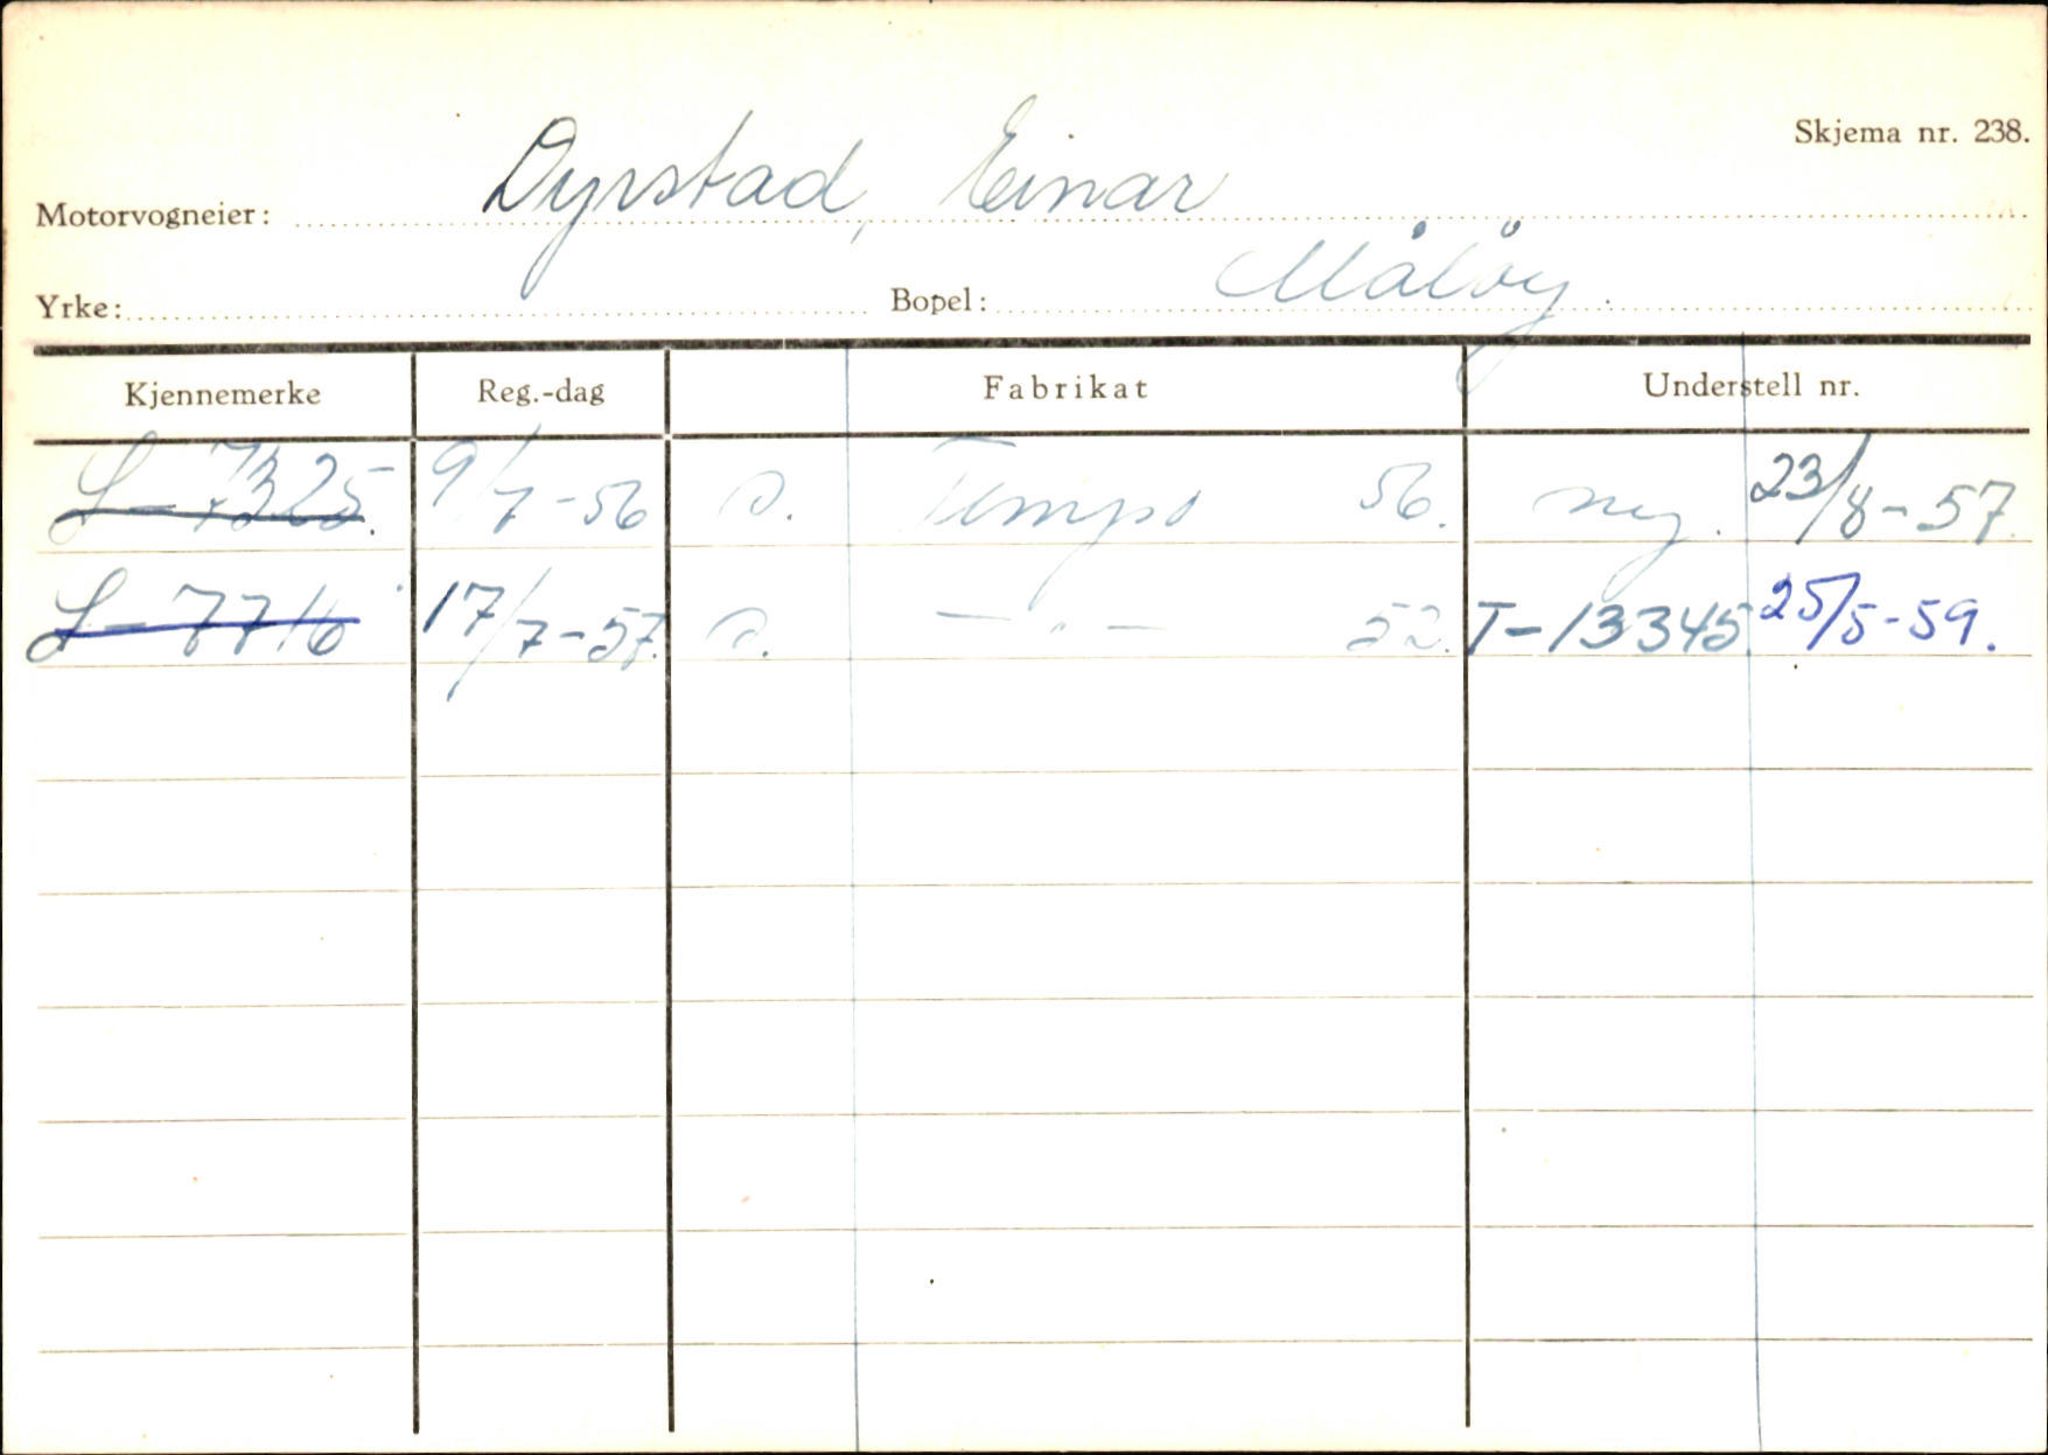 Skjema nr. 238.
Motorvogneier: Dyrstad, Einar
Yrke: Bopel: Måløy.
Kjennemerke Reg.-dag Fabrikat Understell nr.
S-7325. 9/7-56 s. Tempo 56. ny. 23/8-57.
S-7716 17/7-57. s. —"— 52. T-13345. 25/5-59.